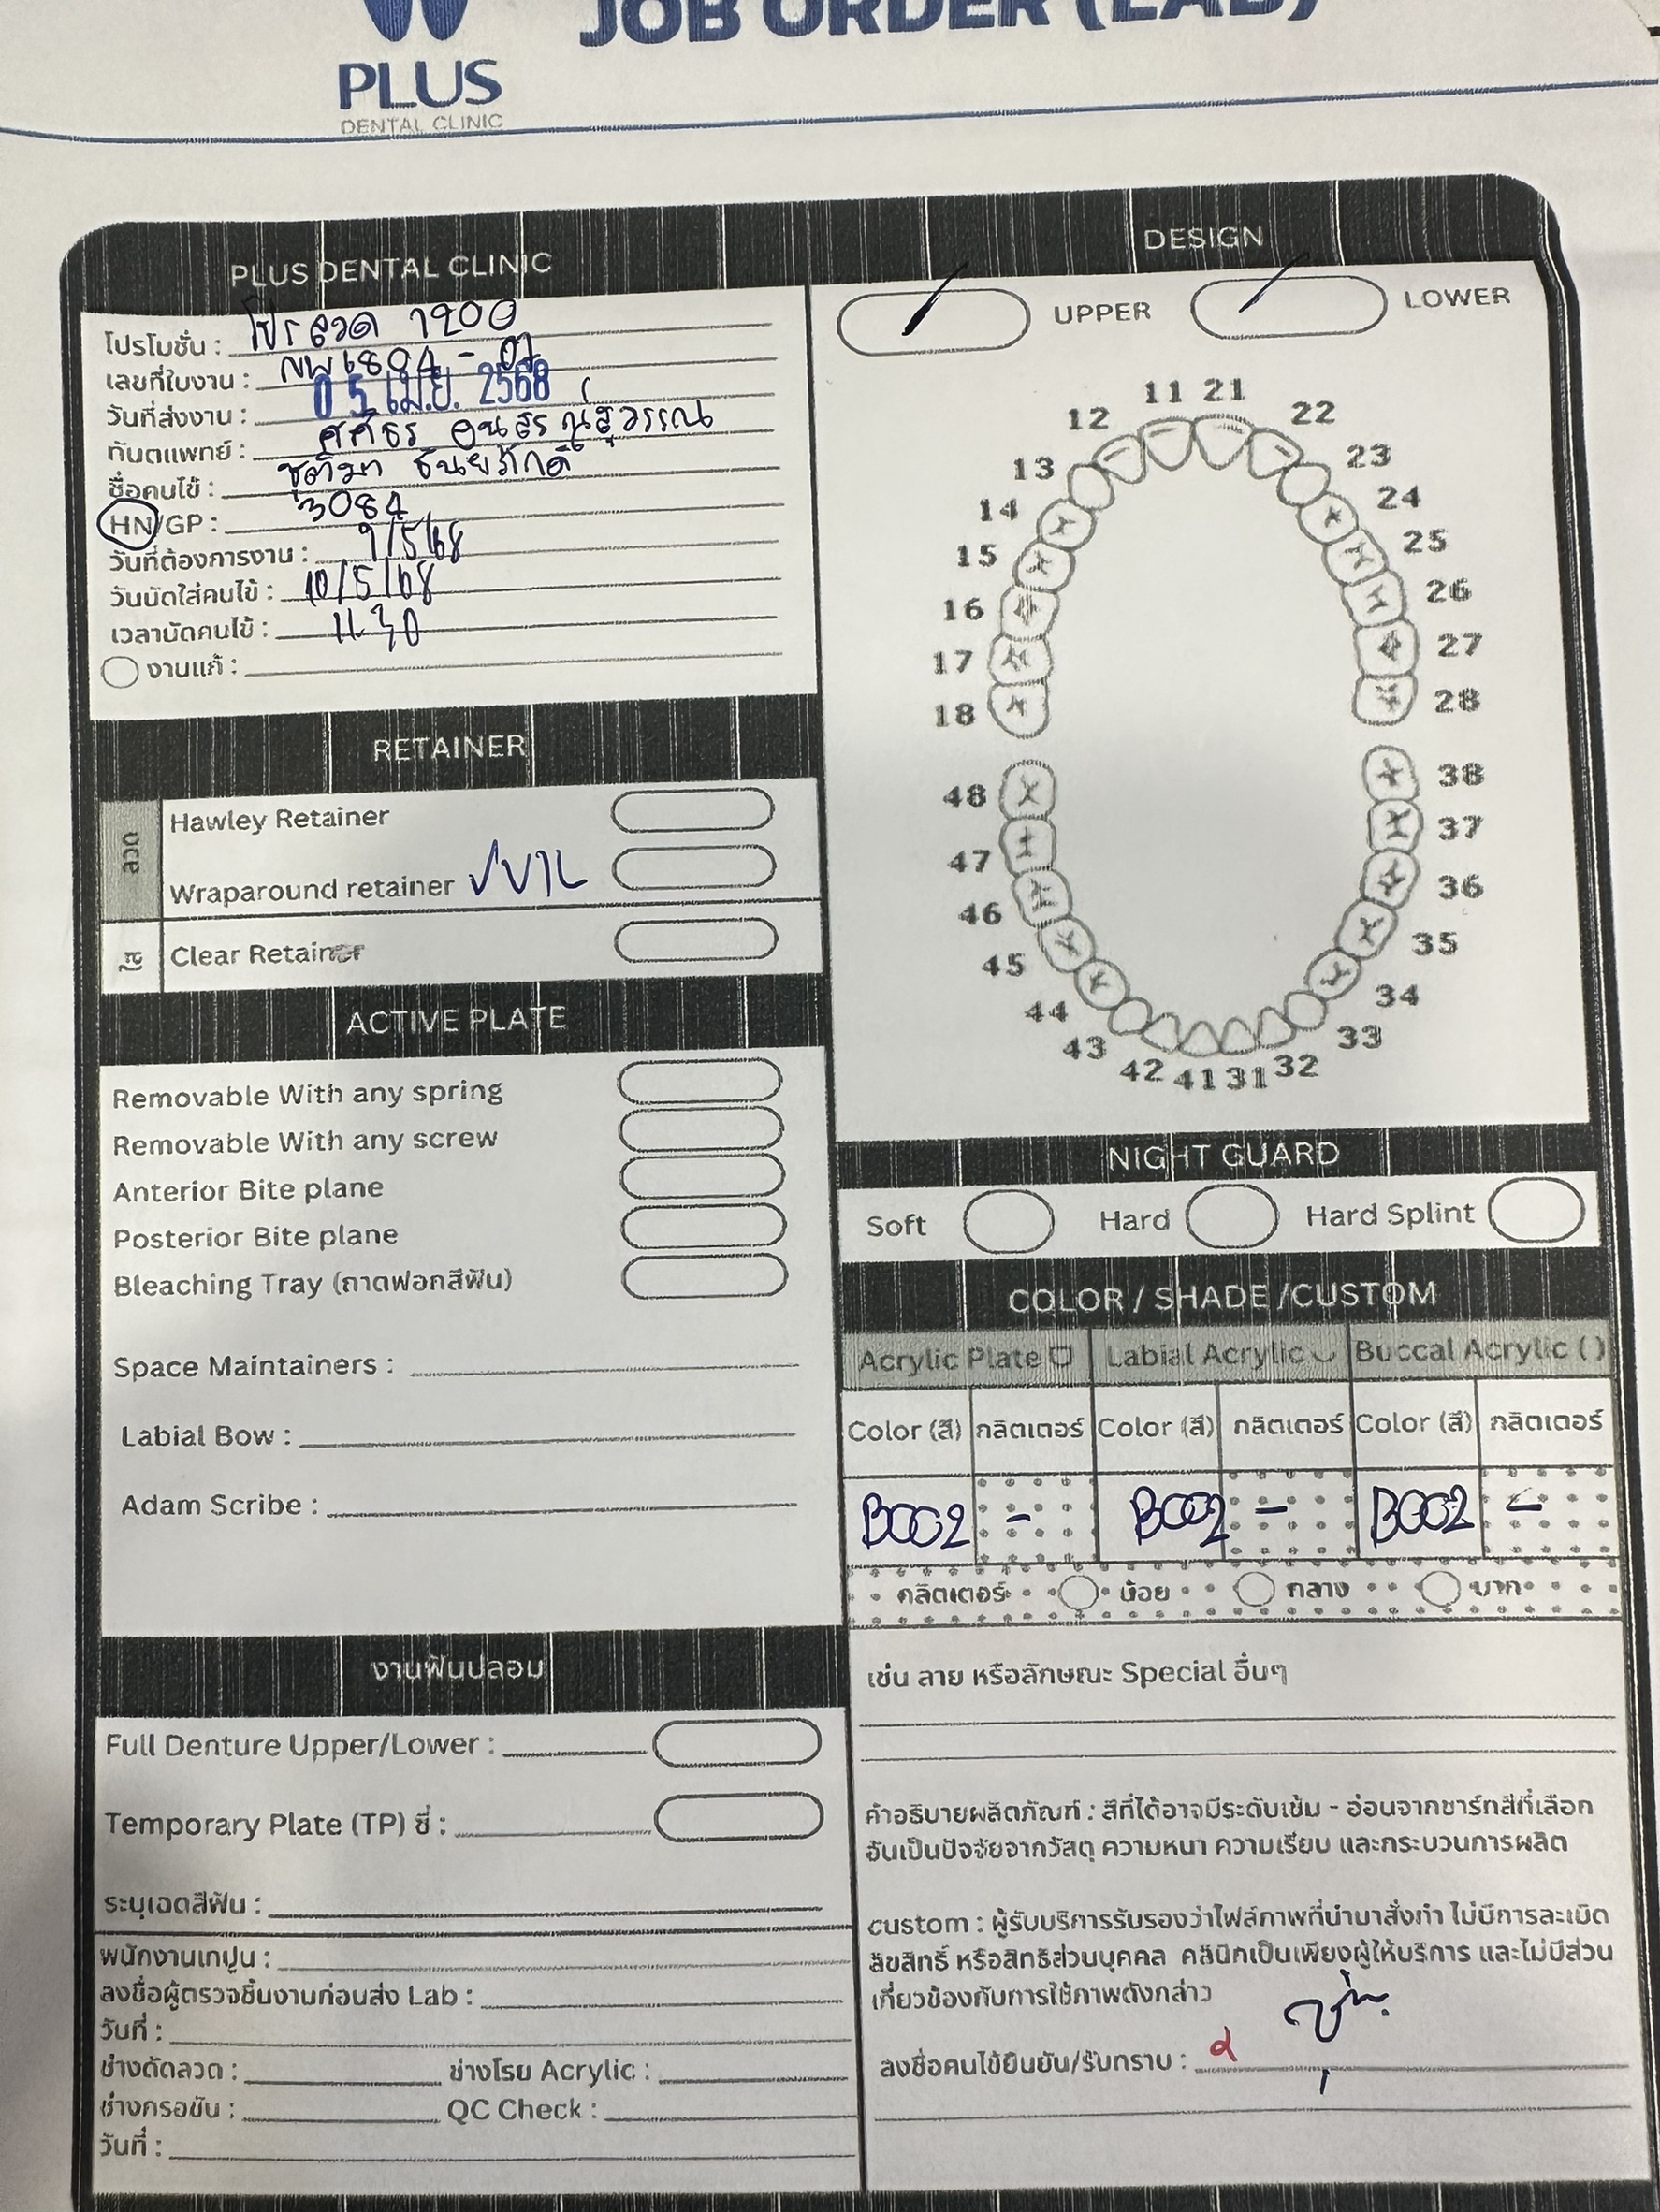 JOB ORDER (LAB)
PLUS
DENTAL CLINIC
PLUS DENTAL CLINIC
โปรโมชั่น : โปรลวด 1200
เลขที่ใบงาน : 6804 - 07
วันที่ส่งงาน : 05 เม.ย. 2568
ทันตแพทย์ :
ชื่อคนไข้ : ชุติมา
HN/GP : 3084
วันที่ต้องการงาน : 9/5/68
วันนัดใส่คนไข้ : 10/5/68
เวลานัดคนไข้ : 11.30
งานแก้ :
RETAINER
ลวด
Hawley Retainer
Wraparound retainer
ใส
Clear Retainer
ACTIVE PLATE
Removable With any spring
Removable With any screw
Anterior Bite plane
Posterior Bite plane
Bleaching Tray (ถาดฟอกสีฟัน)
Space Maintainers :
Labial Bow :
Adam Scribe :
งานฟันปลอม
Full Denture Upper/Lower :
Temporary Plate (TP) ซี่ :
ระบุเฉดสีฟัน :
พนักงานเทปูน :
ลงชื่อผู้ตรวจชิ้นงานก่อนส่ง Lab :
วันที่ :
ช่างดัดลวด : ช่างโรย Acrylic :
ช่างกรอขัน : QC Check :
วันที่ :
DESIGN
UPPER LOWER
11 21
12 22
13 23
14 24
15 25
16 26
17 27
18 28
48 38
47 37
46 36
45 35
44 34
43 33
42 41 31 32
NIGHT GUARD
Soft Hard Hard Splint
COLOR / SHADE /CUSTOM
Acrylic Plate Labial Acrylic Buccal Acrylic ( )
Color (สี) กลิตเตอร์ Color (สี) กลิตเตอร์ Color (สี) กลิตเตอร์
B002 - B002 - B002 -
กลิตเตอร์ น้อย กลาง มาก
เช่น ลาย หรือลักษณะ Special อื่นๆ
คำอธิบายผลิตภัณฑ์ : สีที่ได้อาจมีระดับเข้ม - อ่อนจากชาร์ทสีที่เลือก
อันเป็นปัจจัยจากวัสดุ ความหนา ความเรียบ และกระบวนการผลิต
custom : ผู้รับบริการรับรองว่าไฟล์ภาพที่นำมาสั่งทำ ไม่มีการละเมิด
ลิขสิทธิ์ หรือสิทธิส่วนบุคคล คลินิกเป็นเพียงผู้ให้บริการ และไม่มีส่วน
เกี่ยวข้องกับการใช้ภาพดังกล่าว
ลงชื่อคนไข้ยืนยัน/รับทราบ :